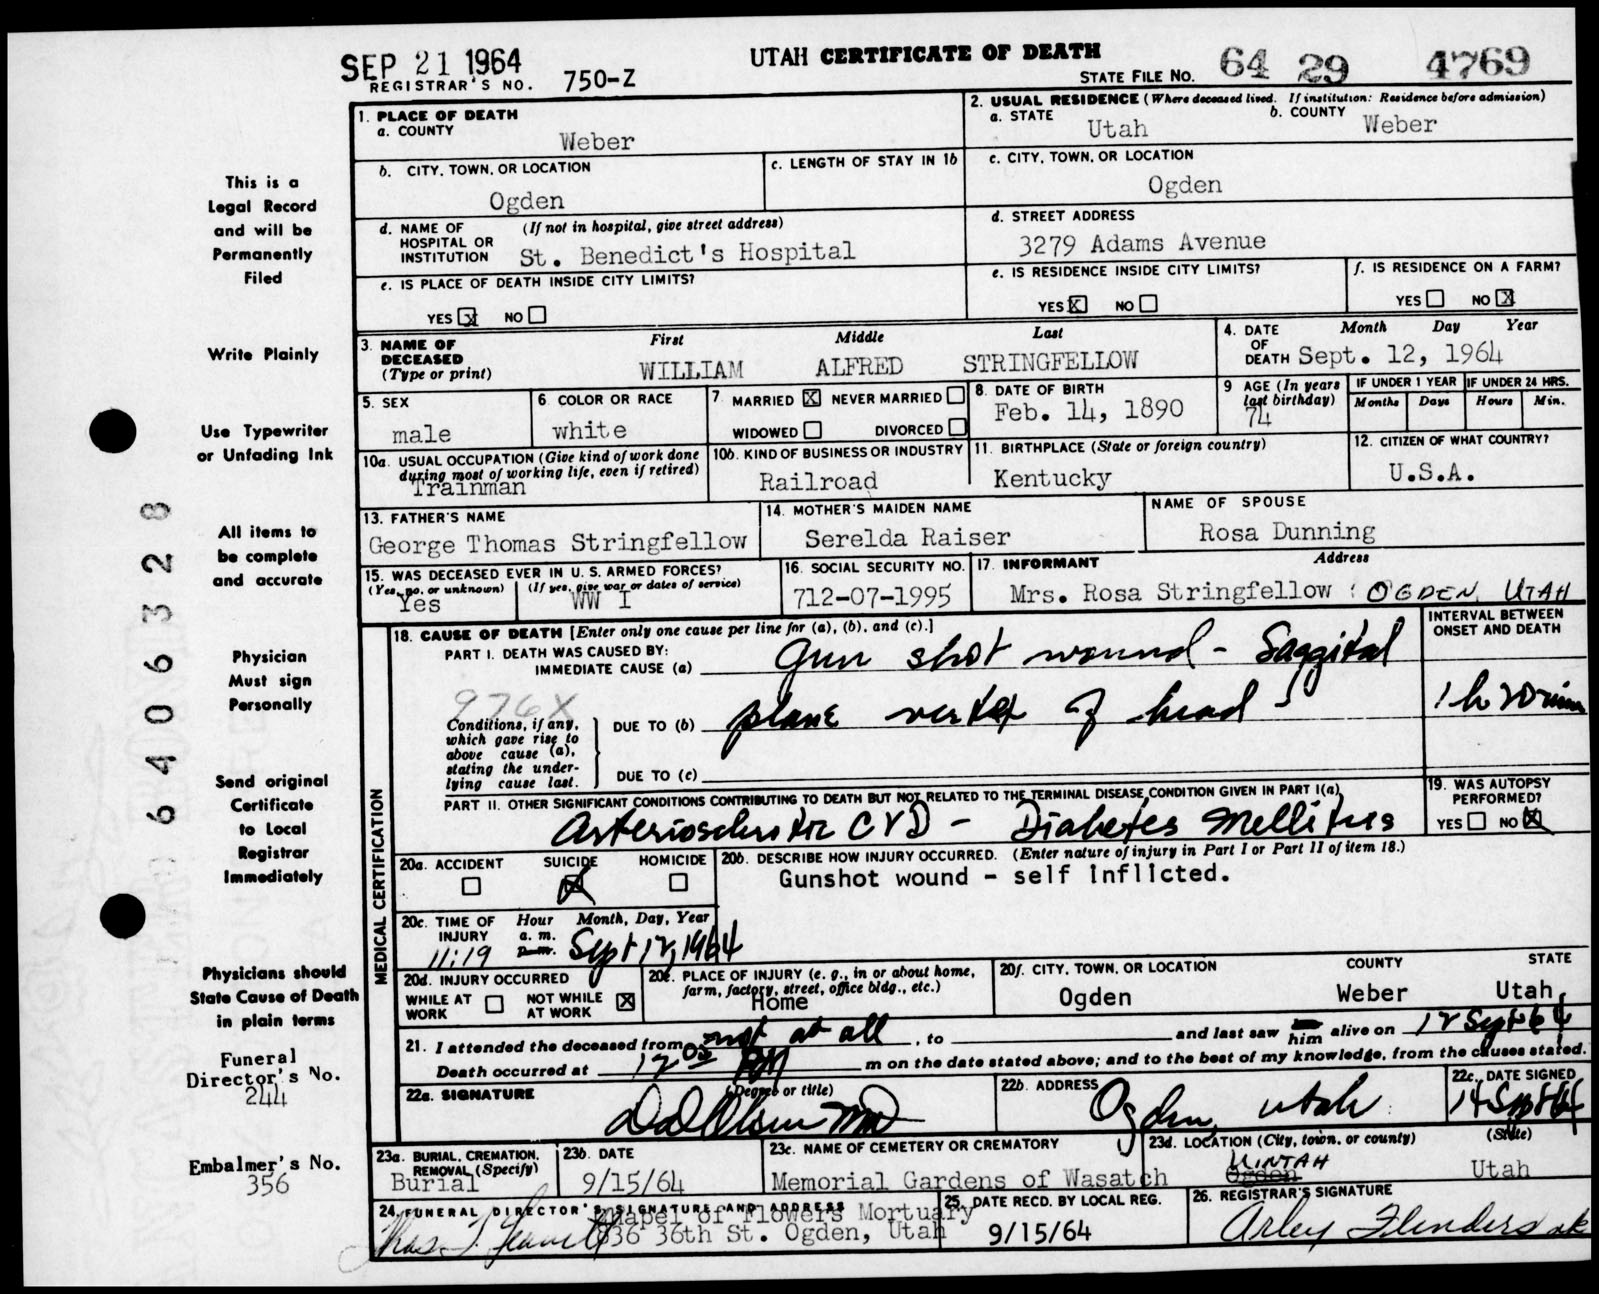 SEP 21 1964
UTAH CERTIFICATE OF DEATH
REGISTRAR'S NO. 750-Z
STATE FILE NO. 64 29 4769
1. PLACE OF DEATH
a. COUNTY
Weber
2. USUAL RESIDENCE (Where deceased lived. If institution: Residence before admission)
a. STATE Utah b. COUNTY Weber
b. CITY, TOWN, OR LOCATION
Ogden
c. LENGTH OF STAY IN 1b
c. CITY, TOWN, OR LOCATION
Ogden
d. NAME OF HOSPITAL OR INSTITUTION (If not in hospital, give street address)
St. Benedict's Hospital
d. STREET ADDRESS
3279 Adams Avenue
e. IS PLACE OF DEATH INSIDE CITY LIMITS?
YES X NO
e. IS RESIDENCE INSIDE CITY LIMITS?
YES X NO
f. IS RESIDENCE ON A FARM?
YES NO X
3. NAME OF DECEASED (Type or print)
First Middle Last
WILLIAM ALFRED STRINGFELLOW
4. DATE OF DEATH Month Day Year
Sept. 12, 1964
5. SEX
male
6. COLOR OR RACE
white
7. MARRIED X NEVER MARRIED
WIDOWED DIVORCED
8. DATE OF BIRTH
Feb. 14, 1890
9 AGE (In years last birthday)
74
IF UNDER 1 YEAR
Months Days
IF UNDER 24 HRS.
Hours Min.
10a. USUAL OCCUPATION (Give kind of work done during most of working life, even if retired)
Trainman
10b. KIND OF BUSINESS OR INDUSTRY
Railroad
11. BIRTHPLACE (State or foreign country)
Kentucky
12. CITIZEN OF WHAT COUNTRY?
U.S.A.
13. FATHER'S NAME
George Thomas Stringfellow
14. MOTHER'S MAIDEN NAME
Serelda Raiser
NAME OF SPOUSE
Rosa Dunning
15. WAS DECEASED EVER IN U. S. ARMED FORCES?
(Yes, no, or unknown) (If yes, give war or dates of service)
Yes WW I
16. SOCIAL SECURITY NO.
712-07-1995
17. INFORMANT Address
Mrs. Rosa Stringfellow : OGDEN, UTAH
18. CAUSE OF DEATH [Enter only one cause per line for (a), (b), and (c).]
INTERVAL BETWEEN ONSET AND DEATH
PART I. DEATH WAS CAUSED BY:
IMMEDIATE CAUSE (a) Gun shot wound - Saggital
976X
Conditions, if any, which gave rise to above cause (a), stating the underlying cause last.
DUE TO (b) plane vertex of head
1 h 20 min
DUE TO (c)
PART II. OTHER SIGNIFICANT CONDITIONS CONTRIBUTING TO DEATH BUT NOT RELATED TO THE TERMINAL DISEASE CONDITION GIVEN IN PART I(a)
Arteriosclerotic CVD - Diabetes Mellitus
19. WAS AUTOPSY PERFORMED?
YES NO X
20a. ACCIDENT SUICIDE HOMICIDE
X
20b. DESCRIBE HOW INJURY OCCURRED. (Enter nature of injury in Part I or Part II of item 18.)
Gunshot wound - self inflicted.
20c. TIME OF INJURY Hour Month, Day, Year
11:19 a. m. p. m. Sept 12, 1964
20d. INJURY OCCURRED
WHILE AT WORK NOT WHILE AT WORK X
20e. PLACE OF INJURY (e. g., in or about home, farm, factory, street, office bldg., etc.)
Home
20f. CITY, TOWN, OR LOCATION COUNTY STATE
Ogden Weber Utah
21. I attended the deceased from not at all, to and last saw him alive on 12 Sept 64
Death occurred at 12 PM m on the date stated above; and to the best of my knowledge, from the causes stated.
22a. SIGNATURE (Degree or title)
Olsen MD
22b. ADDRESS
Ogden, Utah
22c. DATE SIGNED
14 Sept 64
23a. BURIAL, CREMATION, REMOVAL (Specify)
Burial
23b. DATE
9/15/64
23c. NAME OF CEMETERY OR CREMATORY
Memorial Gardens of Wasatch
23d. LOCATION (City, town, or county) (State)
UINTAH
Ogden Utah
24. FUNERAL DIRECTOR'S SIGNATURE AND ADDRESS
Chapel of Flowers Mortuary
836 36th St. Ogden, Utah
25. DATE RECD. BY LOCAL REG.
9/15/64
26. REGISTRAR'S SIGNATURE
Arley Flinders
MEDICAL CERTIFICATION
This is a
Legal Record
and will be
Permanently
Filed
Write Plainly
Use Typewriter
or Unfading Ink
All items to
be complete
and accurate
Physician
Must sign
Personally
Send original
Certificate
to Local
Registrar
Immediately
Physicians should
State Cause of Death
in plain terms
Funeral
Director's No.
244
Embalmer's No.
356
6406328